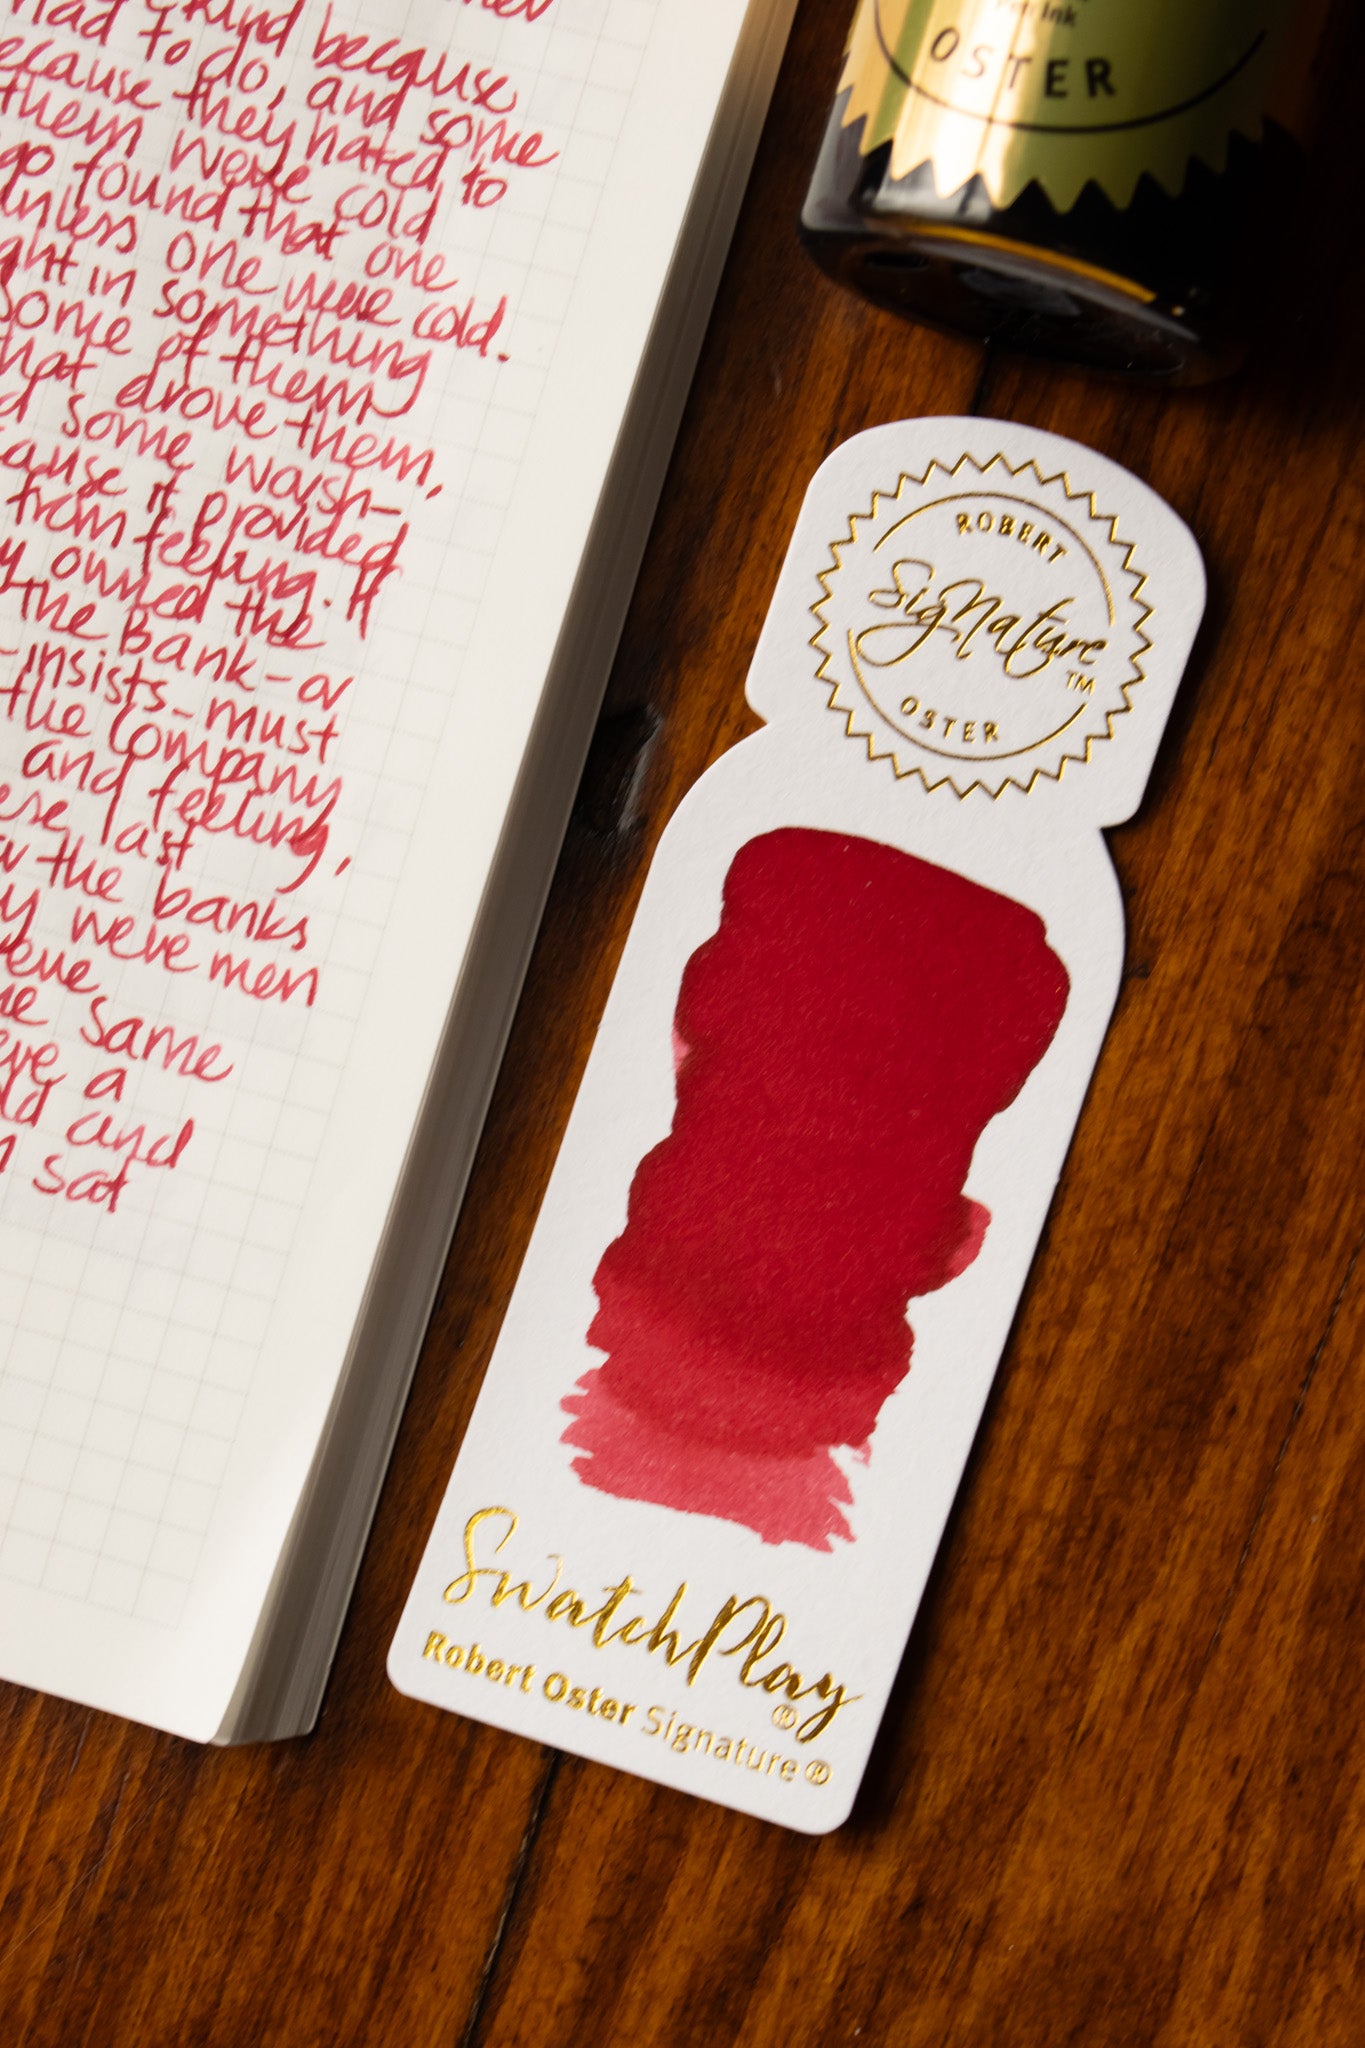 kind because
had to do, and some
because they hated to
them were cold
ago found that one
unless one were cold.
in something
Some of them
that drove them,
some worsh-
cause it provided
from feeling. If
owned the
the Bank-or
-insists-must
the Company
and feeling,
last
the banks
were men
were
same
a
and
sat
Ink
OSTER
ROBERT
SigNature
TM
OSTER
SwatchPlay
®
Robert Oster Signature®